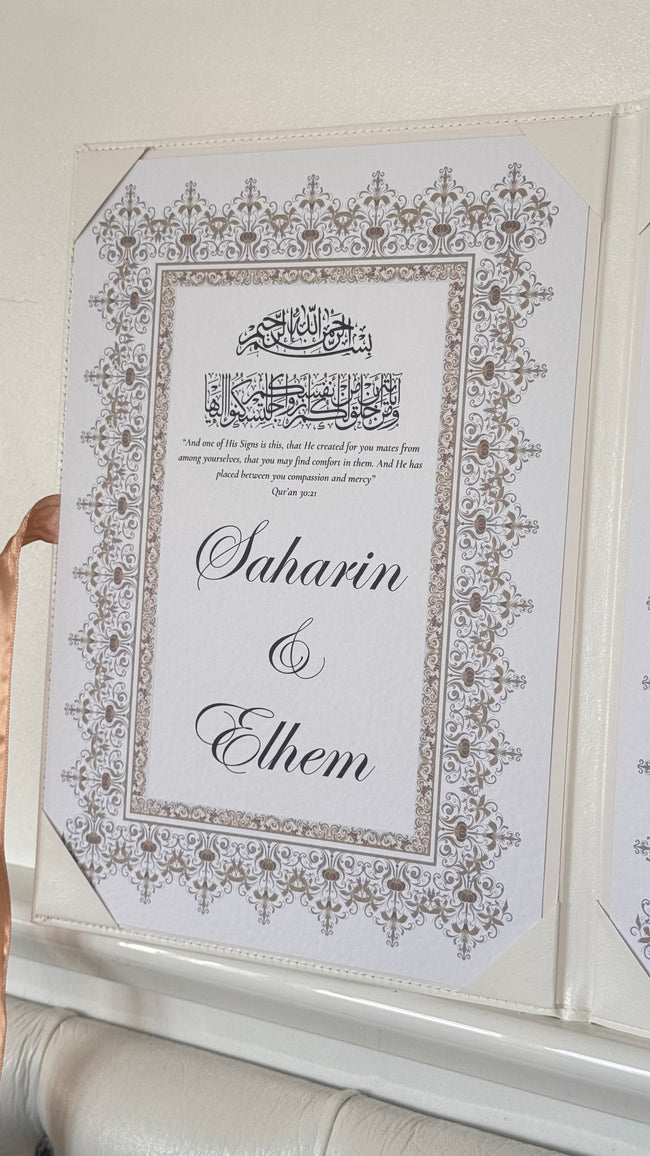 بسم الله الرحمن الرحيم
ومن آياته أن خلق لكم من أنفسكم أزواجا لتسكنوا إليها
“And one of His Signs is this, that He created for you mates from
among yourselves, that you may find comfort in them. And He has
placed between you compassion and mercy”
Qur'an 30:21
Saharin
&
Elhem